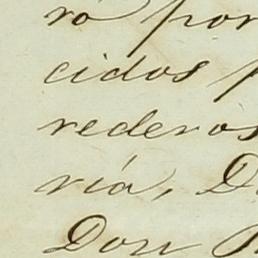 ró por
cidos p
rederos
ría, D
Don